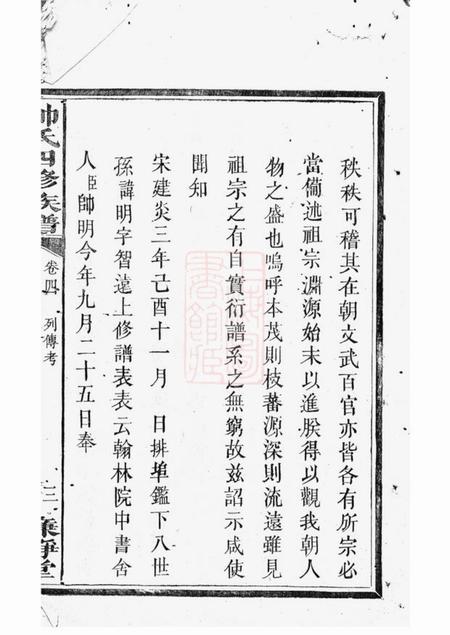 秩秩可稽其在朝文武百官亦皆各有所宗必
當備述祖宗淵源始末以進朕得以觀我朝人
物之盛也嗚呼本茂則枝蕃源深則流遠雖見
祖宗之有自實衍譜系之無窮故兹詔示咸使
聞知
宋建炎三年己酉十一月 日排埠鑑下八世
孫諱明字智遠上修譜表表云翰林院中書舍
人臣帥明今年九月二十五日奉
帥氏四修族譜 卷四 列傳考